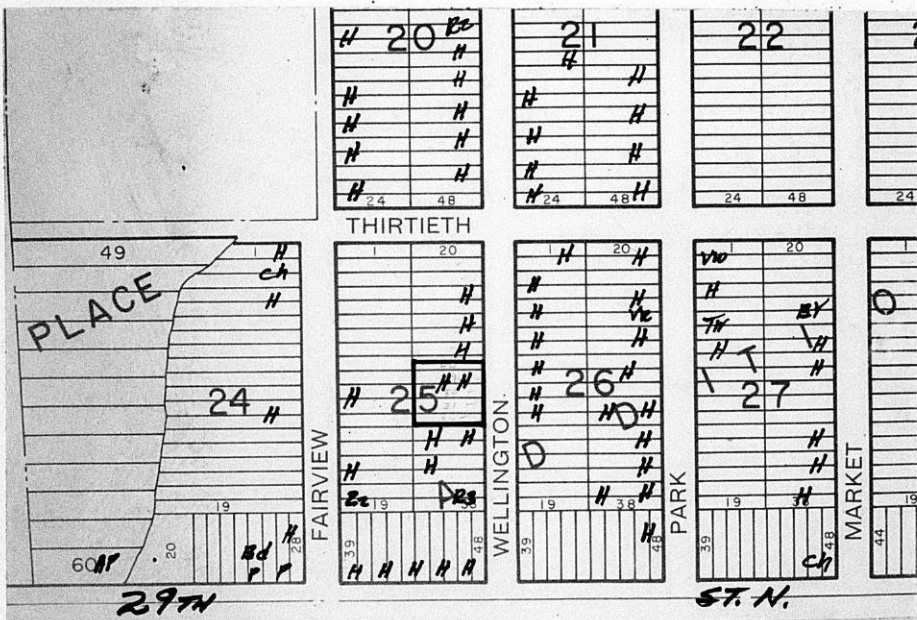 H 20 Rz
H
H
H
H
H
H
H
H
H
H
24 48
21
H
H
H
H
H
H
H
H
H
24 48 H
22
24 48
24
THIRTIETH
49
PLACE
60 AP
1 H
Ch
H
24
H
19
20
28
H
Bd
P P
FAIRVIEW
1 20
H
H
H
H H
H
25
H H
H H
Rz
19
38
39
48
H H H H H
WELLINGTON
1 H 20 H
H
H
H
H
H
H
H
H
26
H
H
H D H
D
H
H
H H
19 38
39
48
H
PARK
1 20
H
H
H
H
I T I
27
H
H
H
19
39
48
Ch
MARKET
1
O
19
44
29TH ST. N.